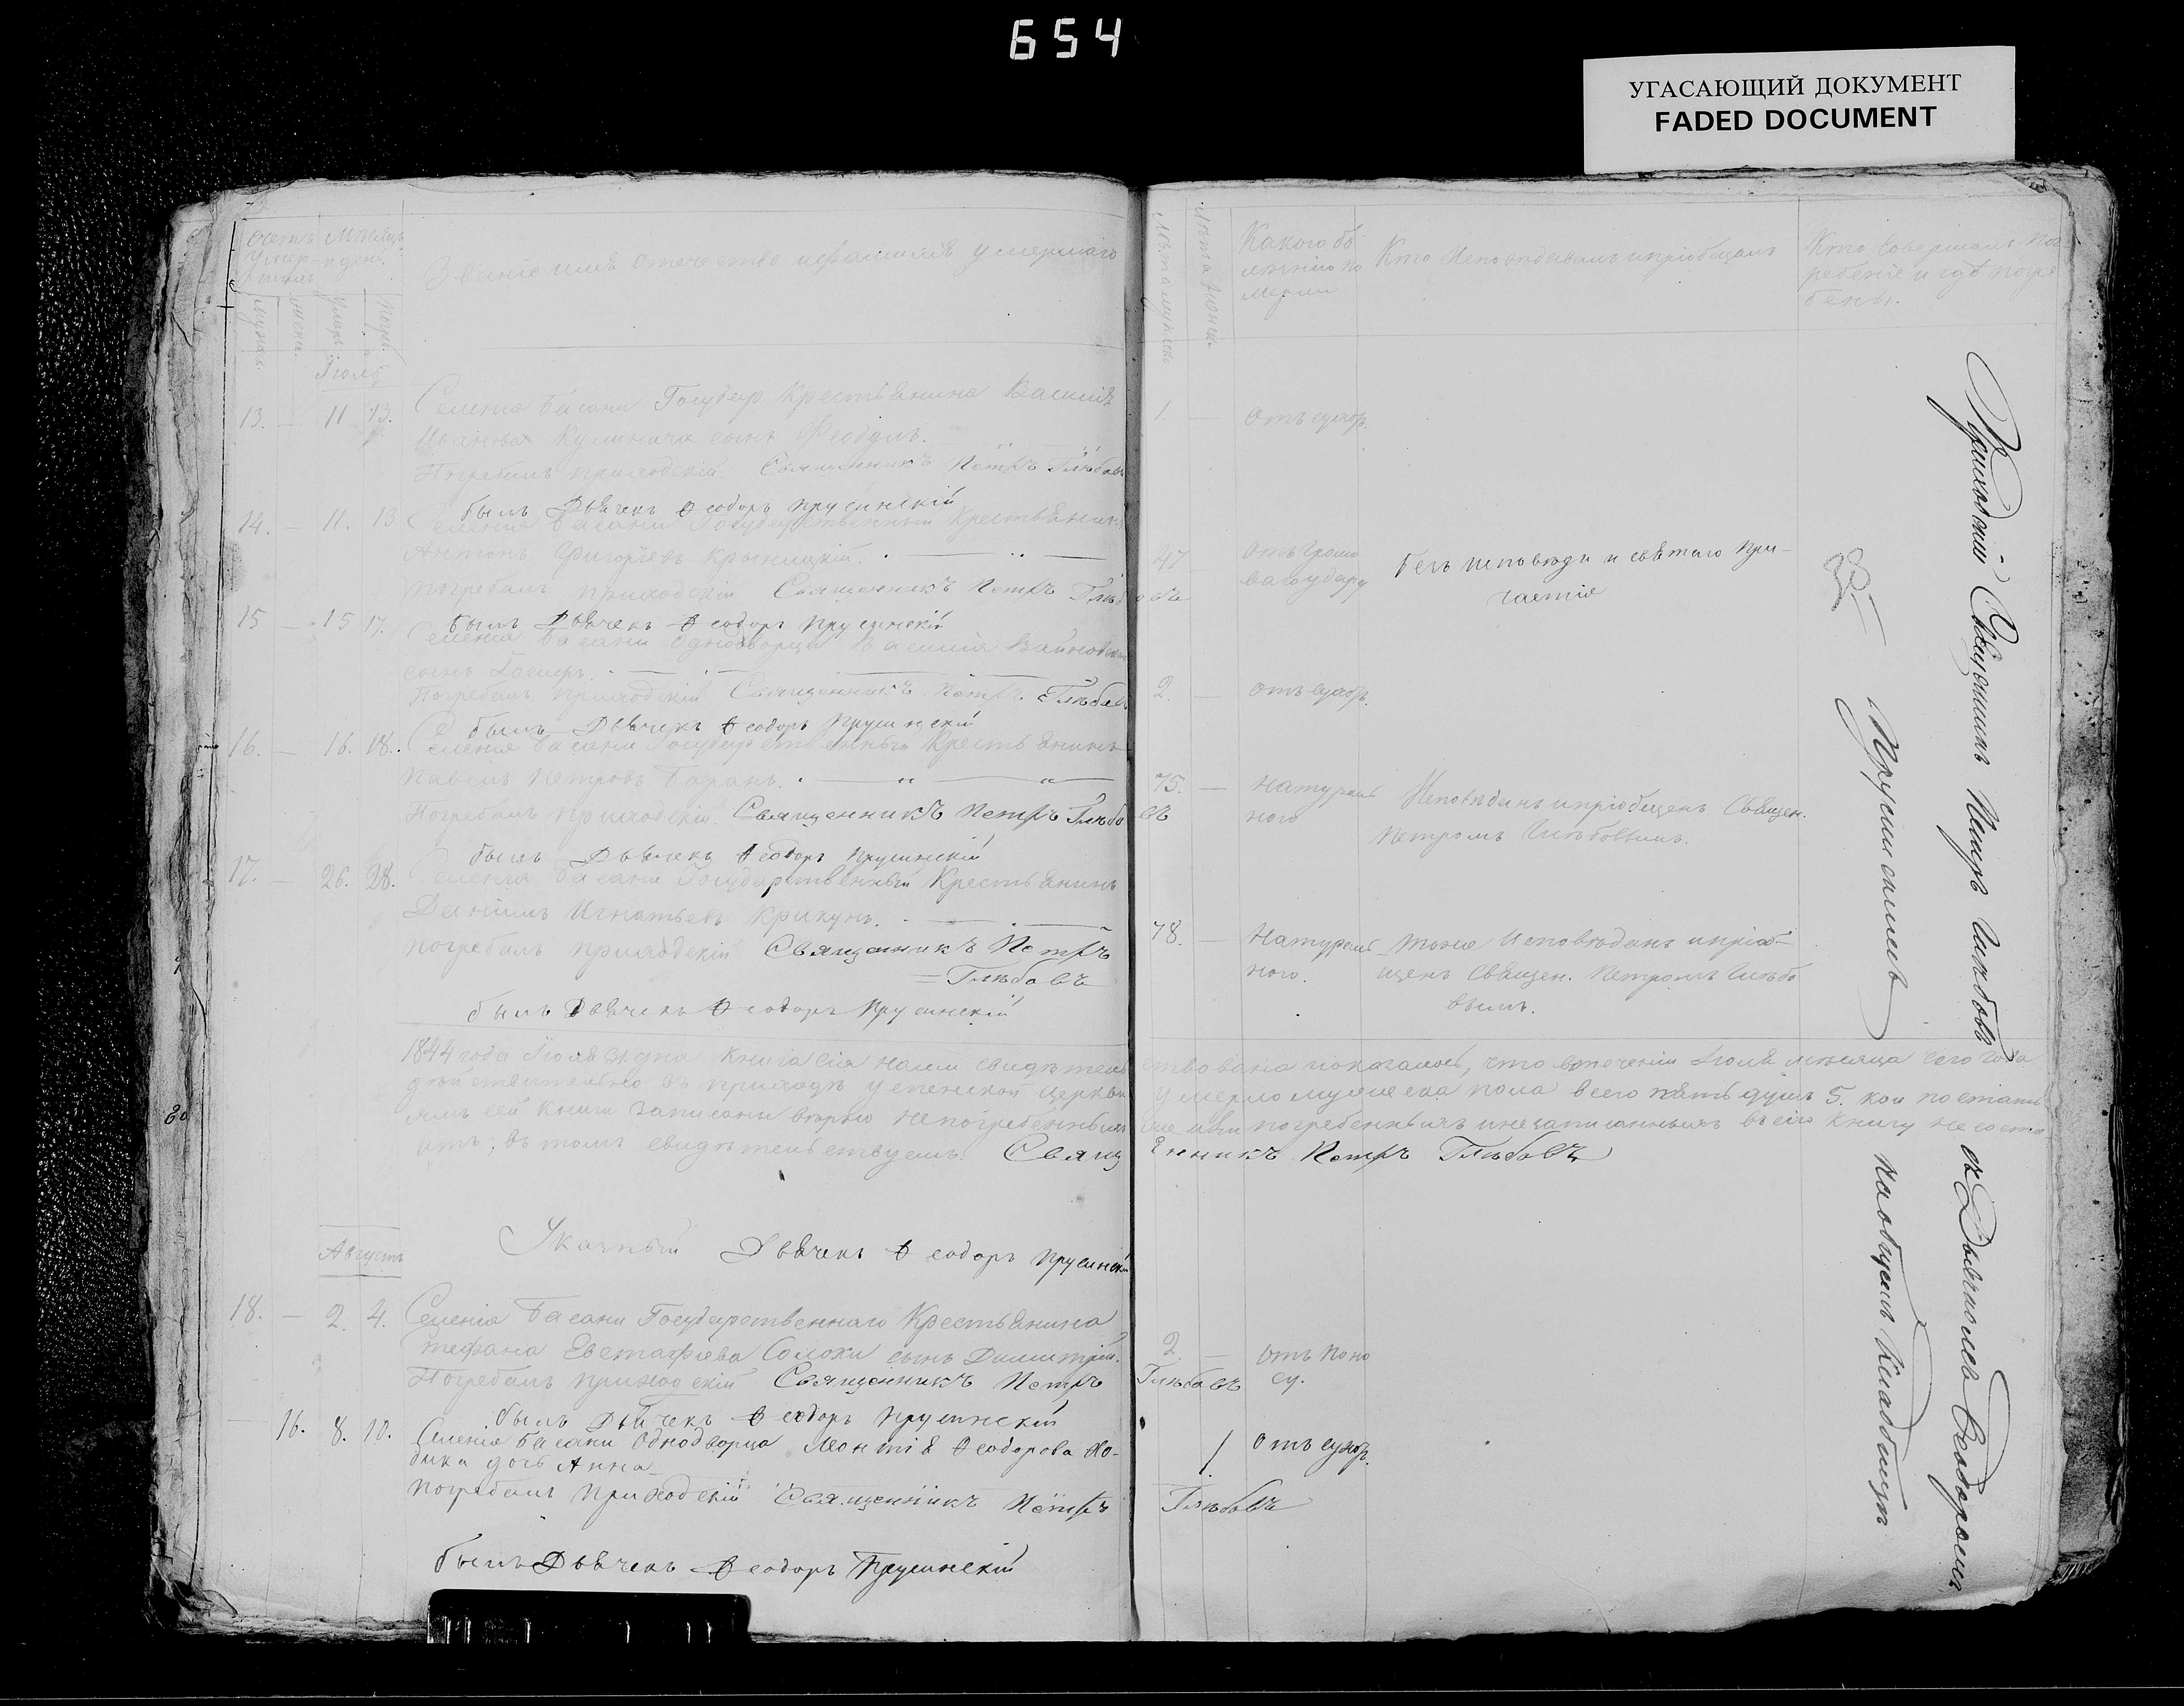 654
УГАСАЮЩИЙ ДОКУМЕНТ
FADED DOCUMENT
Счетъ умершихъ
Мѣсяцъ и день
Званіе имя отечество и фамилія умершаго
Лѣта мужеска
Лѣта женска
Какого бо
лѣзнію по
мерли
Кто Исповѣдывалъ и пріобщалъ
Кто Совершалъ пог
ребеніе и гдѣ погре
бены.
Мужск.
Женск.
Умеръ
Погр.
Іюль
13. — 11 13. Селенія Басани Государ. Крестьянина Василія
Иванова Кулинича сынъ Феодулъ.
Погребалъ приходскій Священникъ Петръ Глѣбовъ
былъ Дьячекъ Ѳеодоръ Прусинскій
1 — Отъ сухор.
14. — 11. 13 Селенія Басани Государственный Крестьянинъ
Антонъ Григорьевъ Крыницкій
Погребалъ приходскій Священникъ Петръ Глѣбовъ
былъ Дьячекъ Ѳеодоръ Прусинскій
47 Отъ Громо
ваго удару
безъ исповѣди и святаго При-
частія
15 — 15 17. Селенія Басани Однодворца Василія
сынъ
Погребалъ приходскій Священникъ Петръ Глѣбовъ
былъ Дьячекъ Ѳеодоръ Прусинскій
2. — отъ сухор.
16. — 16. 18. Селенія Басани Государственный Крестьянинъ
Павелъ Петровъ Баранъ.
Погребалъ приходскій Священникъ Петръ Глѣбовъ
былъ Дьячекъ Ѳеодоръ Прусинскій
75. — Натураль
ного
Исповѣданъ и пріобщенъ Священ.
Петромъ Глѣбовымъ.
17. — 26. 28. Селенія Басани Государственный Крестьянинъ
Даніилъ Игнатьевъ Крикунъ.
погребалъ приходскій Священникъ Петръ
Глѣбовъ
былъ Дьячекъ Ѳеодоръ Прусинскій
78. — Натураль
ного.
тоже Исповѣданъ и пріоб-
щенъ Священ. Петромъ Глѣбо
вымъ.
1844 года Іюля 31. дня Книга сія нами свидѣтельствована и оказалось, что въ теченіи Іюля мѣсяца сего года
дѣйствительно въ приходѣ Успенской Церкви умерло мужеска пола всего пять душъ 5. кои по стать
ямъ сей книги записаны вѣрно непогребенныхъ же или погребенныхъ и незаписанныхъ въ сію книгу не состо
итъ, въ томъ свидѣтельствуемъ. Священникъ Петръ Глѣбовъ
Указный Дьячекъ Ѳеодоръ Прусинскій
Августъ
18. — 2. 4. Селенія Басани Государственнаго Крестьянина
Стефана Евстафіева Солохи сынъ Димитрій.
Погребалъ приходскій Священникъ Петръ Глѣбовъ
былъ Дьячекъ Ѳеодоръ Прусинскій
2. — отъ поно
су.
16. 8. 10. Селенія Басани Однодворца Леонтія Ѳеодорова
дочь Анна
погребалъ Приходскій Священникъ Петръ Глѣбовъ
былъ Дьячекъ Ѳеодоръ Прусинскій
1. отъ сухор.
Приходскій Священникъ Петръ Глѣбовъ съ Дьячкомъ Ѳеодоромъ
Прусинскимъ на общемъ Кладбищѣ